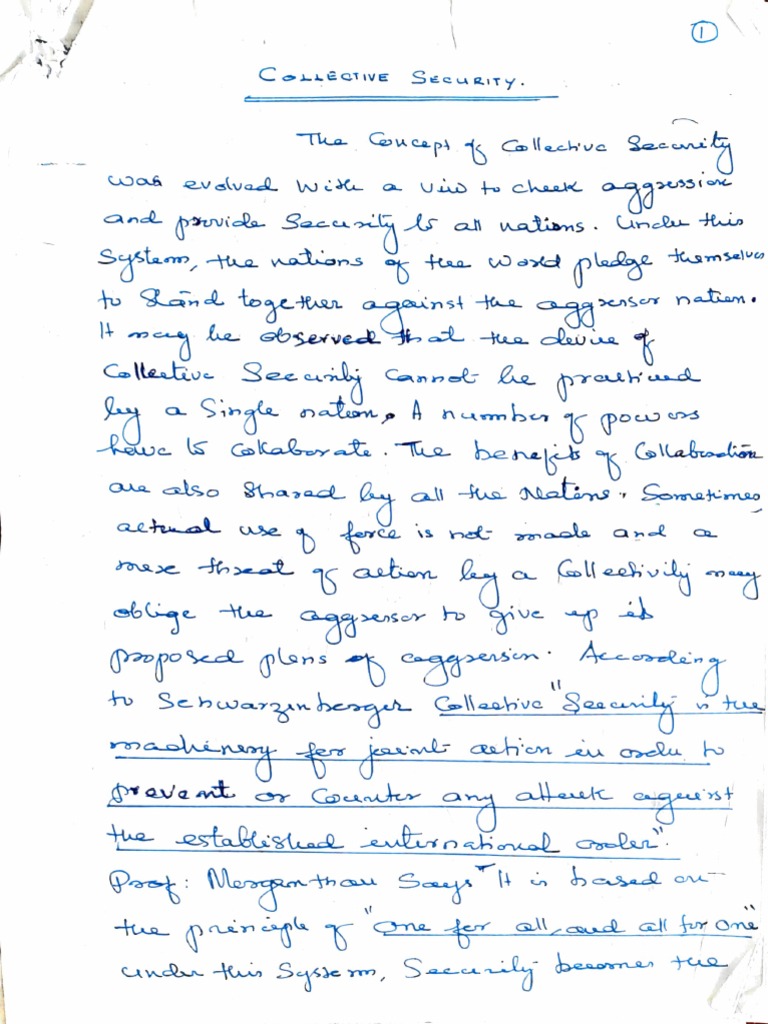 1
COLLECTIVE SECURITY.
The Concept of Collective Security
was evolved with a view to check aggression
and provide Security to all nations. Under this
System, the nations of the world pledge themselves
to Stand together against the aggressor nation.
It may be observed that the device of
Collective Security cannot be practised
by a Single nation. A number of powers
have to collaborate. The benefits of Collaboration
are also Shared by all the Nations. Sometimes
actual use of force is not made and a
mere threat of action by a Collectivity may
oblige the aggressor to give up its
proposed plans of aggression. According
to Schwarzenberger Collective "Security is the
machinery for joint action in order to
prevent or Counter any attack against
the established international order".
Prof: Morgenthau Says "It is based on
the principle of "One for all, and all for one"
under this System, Security becomes the